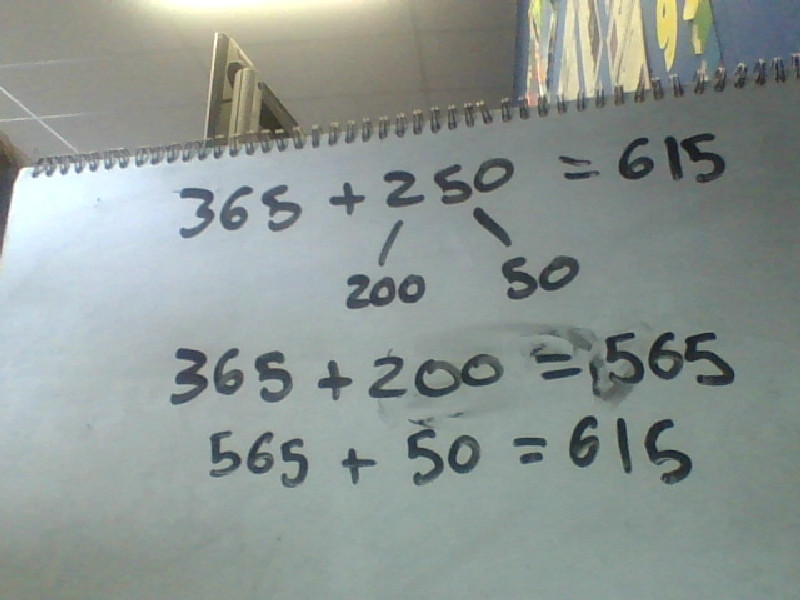 365 + 250 = 615
200 50
365 + 200 = 565
565 + 50 = 615